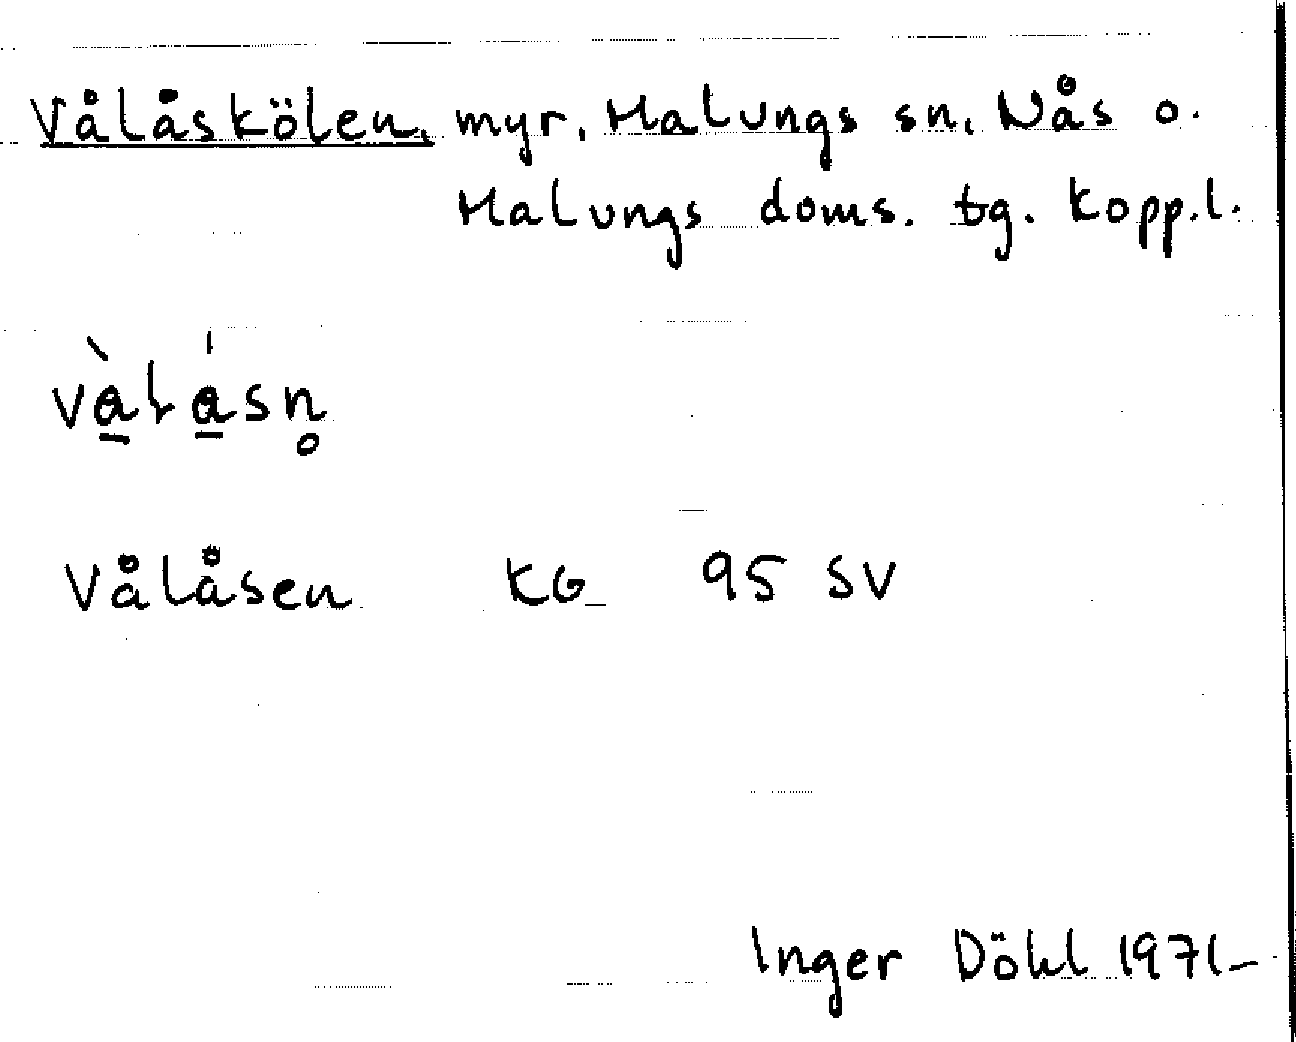 Vålåskölen, myr, Malungs sn, Nås o.
Malungs doms. tg. Kopp.l.
và̱lá̱sn̥
Vålåsen KG 95 SV
Inger Döhl 1971-